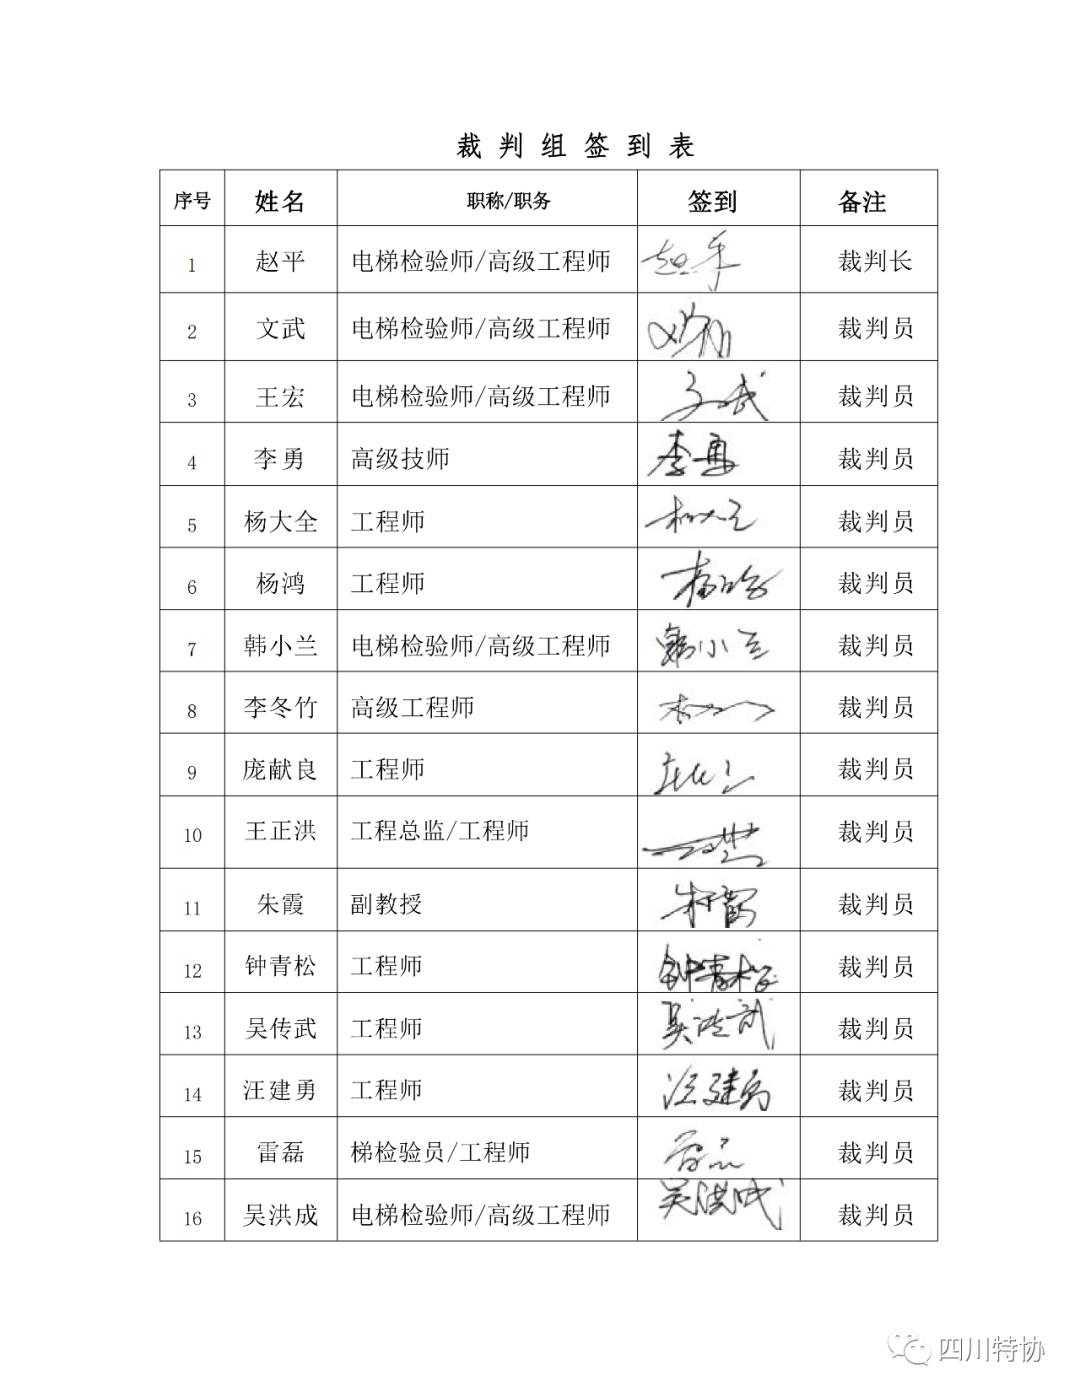 裁判组签到表
序号 姓名 职称/职务 签到 备注
1 赵平 电梯检验师/高级工程师 赵平 裁判长
2 文武 电梯检验师/高级工程师 裁判员
3 王宏 电梯检验师/高级工程师 文武 裁判员
4 李勇 高级技师 李勇 裁判员
5 杨大全 工程师 杨大全 裁判员
6 杨鸿 工程师 裁判员
7 韩小兰 电梯检验师/高级工程师 韩小兰 裁判员
8 李冬竹 高级工程师 裁判员
9 庞献良 工程师 裁判员
10 王正洪 工程总监/工程师 裁判员
11 朱霞 副教授 朱霞 裁判员
12 钟青松 工程师 钟青松 裁判员
13 吴传武 工程师 裁判员
14 汪建勇 工程师 汪建勇 裁判员
15 雷磊 梯检验员/工程师 雷磊 裁判员
16 吴洪成 电梯检验师/高级工程师 吴洪成 裁判员
四川特协